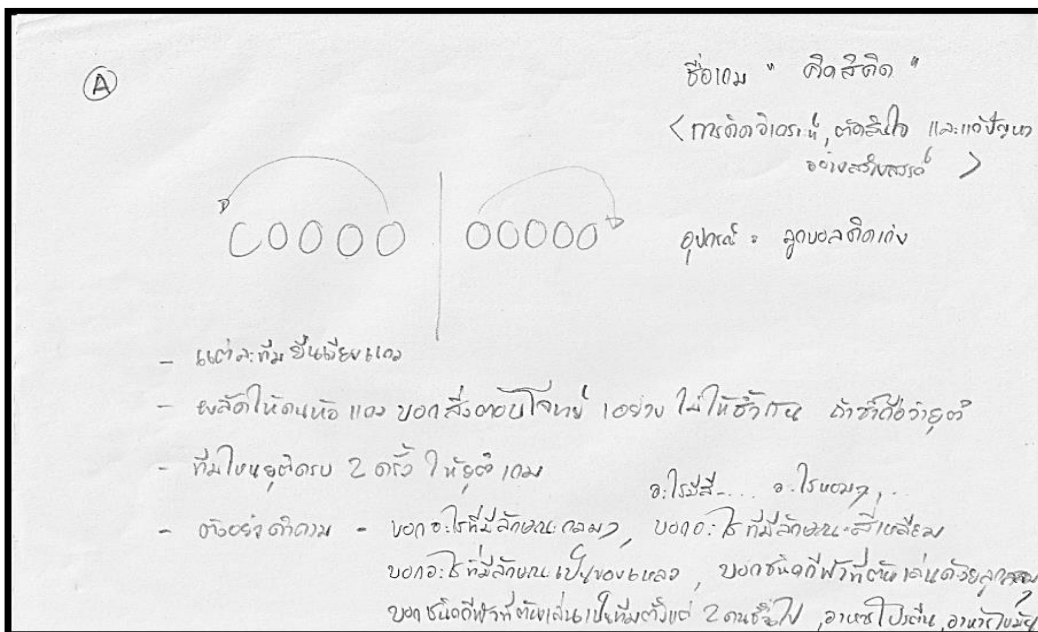 A
ชื่อเกม " คิดสิคิด "
< การคิดวิเคราะห์, ตัดสินใจ และแก้ปัญหา
อย่างสร้างสรรค์ >
อุปกรณ์ = ลูกบอลคิดเก่ง
- แต่ละทีม ยืนเรียงแถว
- ผลัดให้คนหัวแถว บอกสิ่งตอบโจทย์ 1 อย่าง ไม่ให้ซ้ำกัน ถ้าซ้ำถือว่ายุติ
- ทีมไหนยุติครบ 2 ครั้ง ให้ยุติเกม
อะไรมีสี.... อะไรหอมๆ,..
- ตัวอย่างคำถาม - บอกอะไรที่มีลักษณะกลมๆ, บอกอะไรที่มีลักษณะสี่เหลี่ยม
บอกอะไรที่มีลักษณะเป็นของเหลว, บอกชนิดกีฬาที่ต้องเล่นด้วยลูกกลมๆ
บอกชนิดกีฬาที่ต้องเล่นเป็นทีมตั้งแต่ 2 คนขึ้นไป, อาหารโปรตีน, อาหารไขมัน